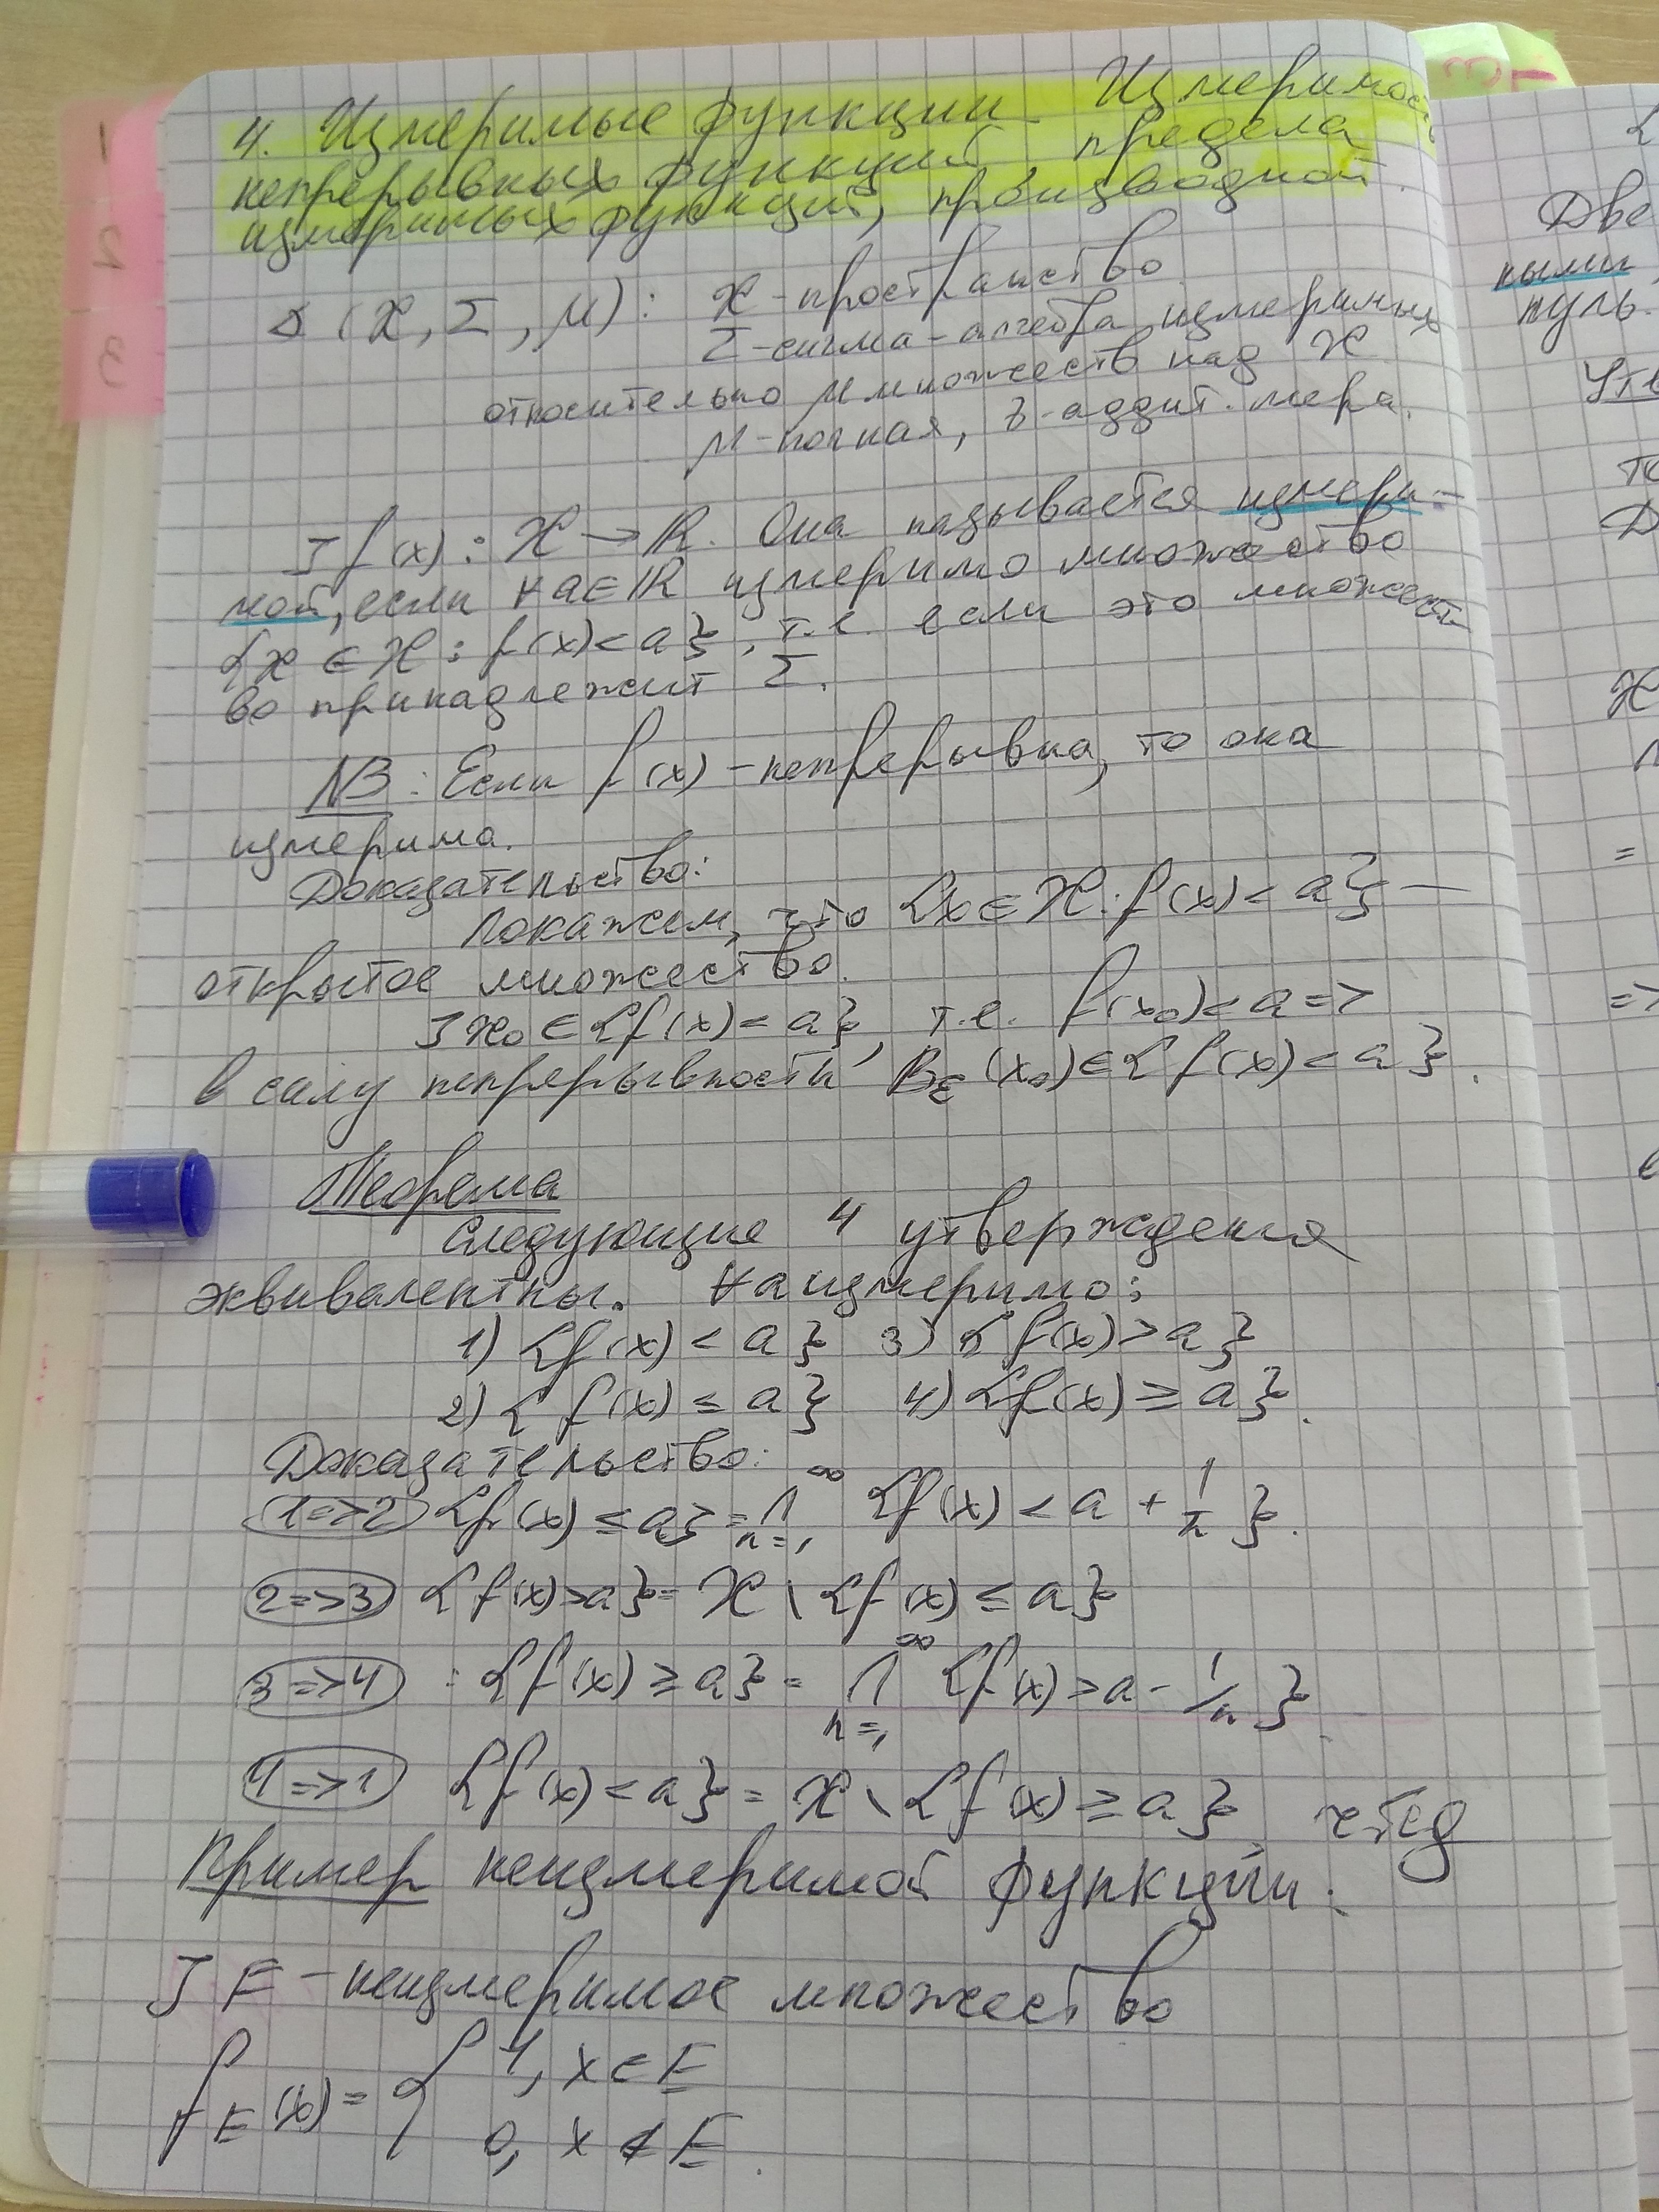 4. Измеримые функции. Измеримость
непрерывных функций, предела
измеримых функций, производной.
(X, Σ, μ): X - пространство
Σ - сигма-алгебра измеримых
относительно μ множеств над X
μ - полная, σ-аддит. мера.
] f(x): X → ℝ. Она называется измери-
мой, если ∀a∈ℝ измеримо множество
{x ∈ X: f(x)<a}, т.е. если это множест-
во принадлежит Σ.
NB: Если f(x) - непрерывна, то она
измерима.
Доказательство:
Покажем, что {x∈X: f(x)<a} —
открытое множество.
] x₀ ∈ {f(x)<a}, т.е. f(x₀)<a =>
в силу непрерывности B_ε(x₀)∈{f(x)<a}.
Теорема
Следующие 4 утверждения
эквивалентны. ∀a измеримо:
1) {f(x) < a} 3) {f(x) > a}
2) {f(x) ≤ a} 4) {f(x) ≥ a}.
Доказательство:
1=>2 {f(x) ≤ a} = ⋂_{n=1}^∞ {f(x) < a + 1/n}.
2=>3 {f(x)>a} = X \ {f(x) ≤ a}
3=>4 : {f(x) ≥ a} = ⋂_{n=1}^∞ {f(x) > a - 1/n}.
4=>1 {f(x) < a} = X \ {f(x) ≥ a}, чтед
Пример неизмеримой функции:
] E - неизмеримое множество
f_E(x) = { 1, x∈E
0, x∉E.
1
2
3
Две
ными
нуль.
Утв
=
=>